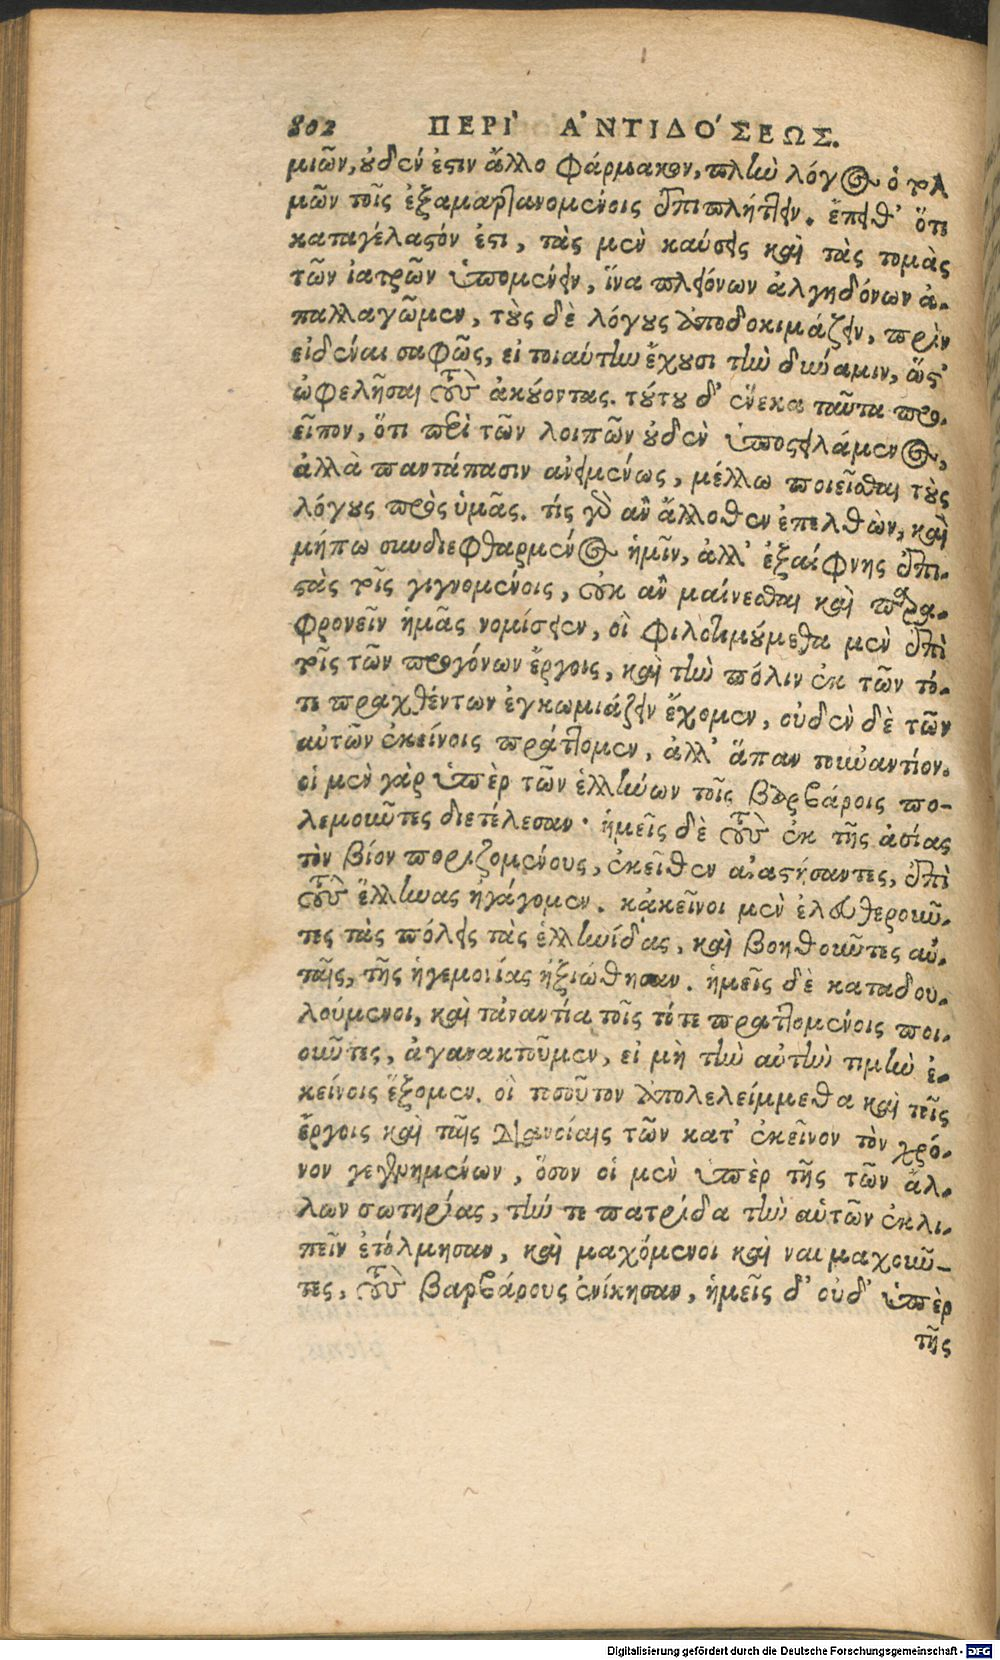 802 ΠΕΡΙ' Α'ΝΤΙΔΟ'ΣΕΩΣ.
μιῶν, οὐδέν ἐστιν ἄλλο φάρμακον, πλὴν λόγος ὁ τολ
μῶν τοῖς ἐξαμαρτανομένοις ἐπιπλήττειν. ἔπειθ' ὅτι
καταγέλαστόν ἐστι, τὰς μὲν καύσεις καὶ τὰς τομὰς
τῶν ἰατρῶν ὑπομένειν, ἵνα πλειόνων ἀλγηδόνων ἀ-
παλλαγῶμεν, τοὺς δὲ λόγους ἀποδοκιμάζειν, πρὶν
εἰδέναι σαφῶς, εἰ τοιαύτην ἔχουσι τὴν δύναμιν, ὥστ'
ὠφελῆσαι τοὺς ἀκούοντας. τούτου δ' ἕνεκα ταῦτα προ-
εῖπον, ὅτι περὶ τῶν λοιπῶν οὐδὲν ὑποστειλάμενος,
ἀλλὰ παντάπασιν ἀνειμένως, μέλλω ποιεῖσθαι τοὺς
λόγους πρὸς ὑμᾶς. τίς γὰρ ἂν ἄλλοθεν ἐπελθὼν, καὶ
μήπω συνδιεφθαρμένος ἡμῖν, ἀλλ' ἐξαίφνης ἐπι-
στὰς τοῖς γιγνομένοις, οὐκ ἂν μαίνεσθαι καὶ παρα-
φρονεῖν ἡμᾶς νομίσειεν, οἳ φιλοτιμούμεθα μὲν ἐπὶ
τοῖς τῶν προγόνων ἔργοις, καὶ τὴν πόλιν ἐκ τῶν τό-
τε πραχθέντων ἐγκωμιάζειν ἔχομεν, οὐδὲν δὲ τῶν
αὐτῶν ἐκείνοις πράττομεν, ἀλλ' ἅπαν τοὐναντίον.
οἱ μὲν γὰρ ὑπὲρ τῶν ἑλλήνων τοῖς βαρβάροις πο-
λεμοῦντες διετέλεσαν· ἡμεῖς δὲ τοὺς ἐκ τῆς ἀσίας
τὸν βίον ποριζομένους, ἐκεῖθεν ἀναστήσαντες, ἐπὶ
τοὺς ἕλληνας ἠγάγομεν. κἀκεῖνοι μὲν ἐλευθεροῦν-
τες τὰς πόλεις τὰς ἑλληνίδας, καὶ βοηθοῦντες αὐ-
ταῖς, τῆς ἡγεμονίας ἠξιώθησαν. ἡμεῖς δὲ καταδου-
λούμενοι, καὶ τἀναντία τοῖς τότε πραττομένοις ποι-
οῦντες, ἀγανακτοῦμεν, εἰ μὴ τὴν αὐτὴν τιμὴν ἐ-
κείνοις ἕξομεν. οἳ τοσοῦτον ἀπολελείμμεθα καὶ τοῖς
ἔργοις καὶ ταῖς διανοίαις τῶν κατ' ἐκεῖνον τὸν χρό-
νον γεγενημένων, ὅσον οἱ μὲν ὑπὲρ τῆς τῶν ἄλ-
λων σωτηρίας, τήν τε πατρίδα τὴν αὑτῶν ἐκλι-
πεῖν ἐτόλμησαν, καὶ μαχόμενοι καὶ ναυμαχοῦν-
τες, τοὺς βαρβάρους ἐνίκησαν, ἡμεῖς δ' οὐδ' ὑπὲρ
τῆς
Digitalisierung gefördert durch die Deutsche Forschungsgemeinschaft - DFG